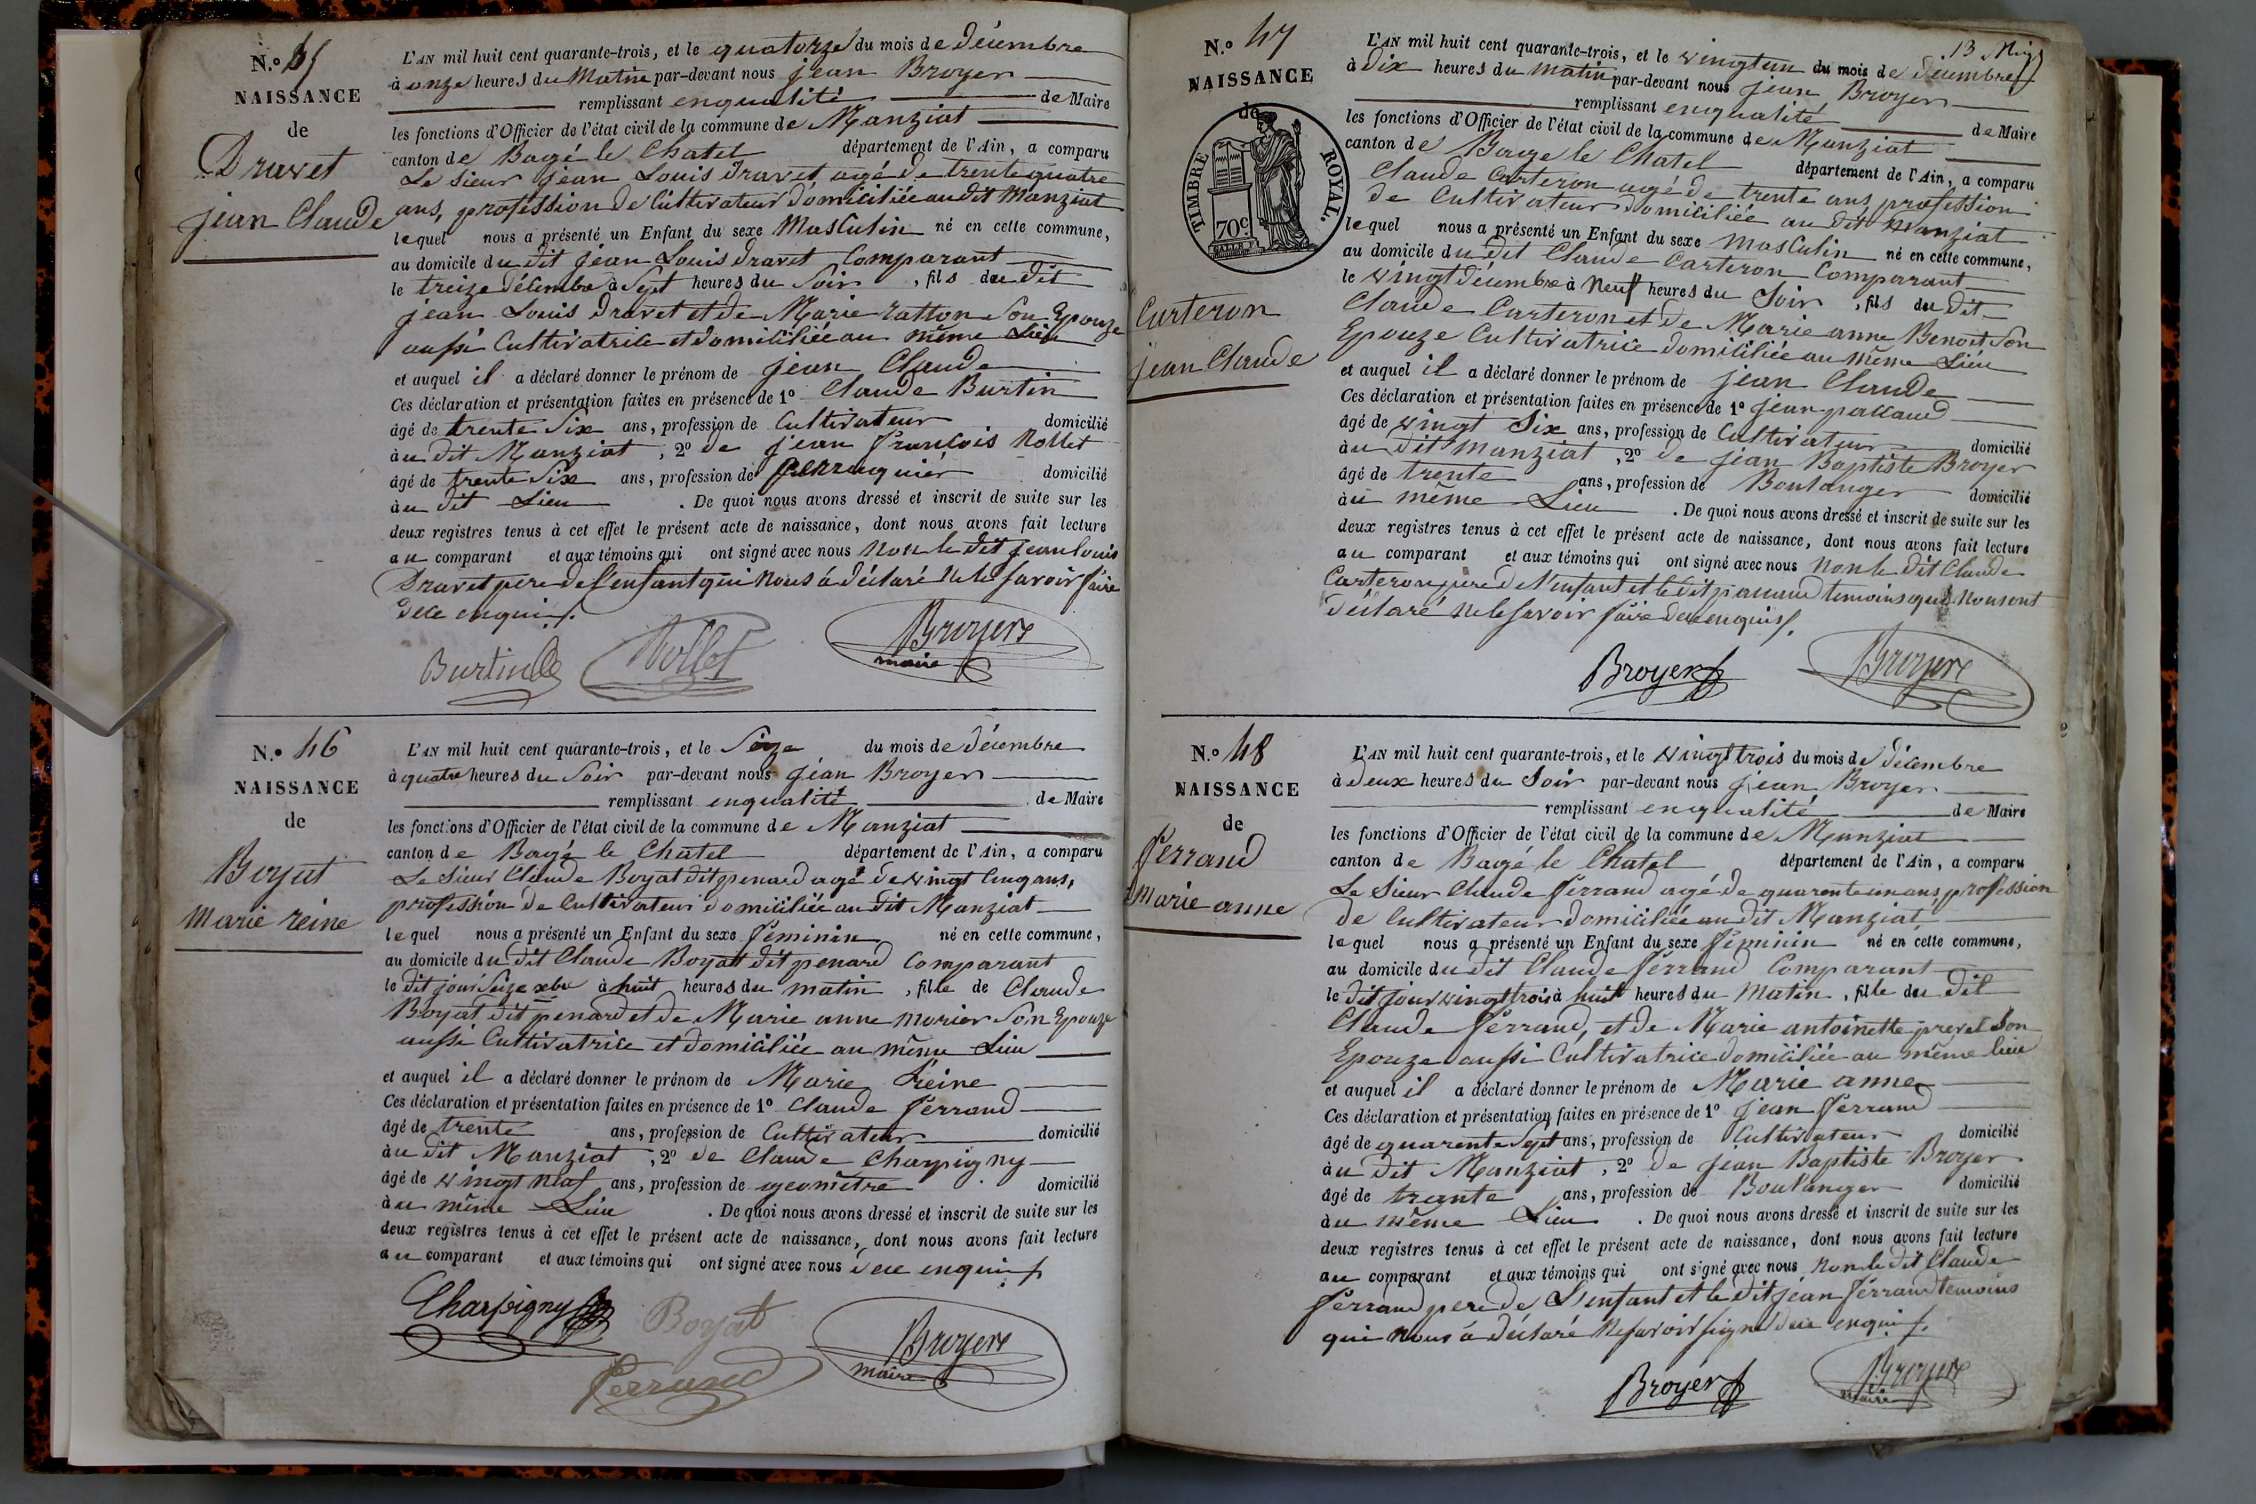 N.º 45
NAISSANCE
de
Dravet
jean Claude
L'AN mil huit cent quarante-trois, et le quatorze du mois de décembre
à onze heures du Matin par-devant nous jean Broyer
remplissant enqualité de Maire
les fonctions d'Officier de l'état civil de la commune de Manziat
canton de Bagé le Chatel département de l'Ain, a comparu
Le sieur jean Louis Dravet agé de trente quatre
ans, profession de Cultivateur domiciliée au dit Manziat
lequel nous a présenté un Enfant du sexe Masculin né en cette commune,
au domicile du dit jean Louis Dravet Comparant
le treize décembre à Sept heures du Soir, fils du dit
jean Louis Dravet et de Marie ratton Son Epouze
aussi Cultivatrice et domiciliée au même Lieu
et auquel il a déclaré donner le prénom de jean Claude
Ces déclaration et présentation faites en présence de 1º Claude Burtin
âgé de trente Six ans, profession de Cultivateur domicilié
au dit Manziat, 2º de jean François Nollet
âgé de trente Six ans, profession de perruquier domicilié
au dit Lieu. De quoi nous avons dressé et inscrit de suite sur les
deux registres tenus à cet effet le présent acte de naissance, dont nous avons fait lecture
au comparant et aux témoins qui ont signé avec nous Non le dit jean louis
Dravet pere de l'enfant qui Nous á déclaré Ne le savoir faire
dece enquis.
Burtin Nollet Broyer
maire
N.º 46
NAISSANCE
de
Boyat
Marie reine
L'AN mil huit cent quarante-trois, et le Seize du mois de décembre
à quatre heures du Soir par-devant nous jean Broyer
remplissant enqualité de Maire
les fonctions d'Officier de l'état civil de la commune de Manziat
canton de Bagé le Chatel département de l'Ain, a comparu
Le Sieur Claude Boyat dit penard agé de vingt Cinq ans,
profession de Cultivateur domiciliée au dit Manziat
lequel nous a présenté un Enfant du sexe féminin né en cette commune,
au domicile du dit Claude Boyat dit penard Comparant
le dit jour Seize xbre à huit heures du matin, fille de Claude
Boyat dit penard et de Marie anne morier Son Epouze
aussi Cultivatrice et domiciliée au même Lieu
et auquel il a déclaré donner le prénom de Marie Reine
Ces déclaration et présentation faites en présence de 1º Claude Ferrand
âgé de trente ans, profession de Cultivateur domicilié
au dit Manziat, 2º de Claude Charpigny
âgé de vingt Neuf ans, profession de geomêtre domicilié
au même Lieu. De quoi nous avons dressé et inscrit de suite sur les
deux registres tenus à cet effet le présent acte de naissance, dont nous avons fait lecture
au comparant et aux témoins qui ont signé avec nous dece enquis
Charpigny Boyat Broyer
Ferrand maire
N.º 47
NAISSANCE
de
TIMBRE ROYAL.
70c
Carteron
jean Claude
13
L'AN mil huit cent quarante-trois, et le vingtun du mois de décembre
à dix heures du matin par-devant nous jean Broyer
remplissant enqualité de Maire
les fonctions d'Officier de l'état civil de la commune de Manziat
canton de Bauge le Chatel département de l'Ain, a comparu
Claude Carteron agé de trente ans, profession
de Cultivateur domiciliée au dit Manziat
lequel nous a présenté un Enfant du sexe Masculin né en cette commune,
au domicile du dit Claude Carteron Comparant
le vingt décembre à Neuf heures du Soir, fils du dit
Claude Carteron et de Marie anne Benoit Son
Epouze Cultivatrice domiciliée au même Lieu
et auquel il a déclaré donner le prénom de jean Claude
Ces déclaration et présentation faites en présence de 1º jean pacaud
âgé de vingt Six ans, profession de Cultivateur domicilié
au dit Manziat, 2º de jean Baptiste Broyer
âgé de trente ans, profession de Boulanger domicilié
au même Lieu. De quoi nous avons dressé et inscrit de suite sur les
deux registres tenus à cet effet le présent acte de naissance, dont nous avons fait lecture
au comparant et aux témoins qui ont signé avec nous Non le dit Claude
Carteron pere de l'enfant et le dit pacaud temoins qui Nous ont
déclaré Ne le savoir faire dece enquis.
Broyer Broyer
N.º 48
NAISSANCE
de
Ferrand
Marie anne
L'AN mil huit cent quarante-trois, et le vingt trois du mois de décembre
à deux heures du Soir par-devant nous jean Broyer
remplissant enqualité de Maire
les fonctions d'Officier de l'état civil de la commune de Manziat
canton de Bagé le Chatel département de l'Ain, a comparu
Le Sieur Claude Ferrand agé de quarente un ans, profession
de Cultivateur domiciliée au dit Manziat
lequel nous a présenté un Enfant du sexe féminin né en cette commune,
au domicile du dit Claude Ferrand Comparant
le dit jour vingt trois à huit heures du Matin, fille du dit
Claude Ferrand, et de Marie antoinette prevel Son
Epouze aussi Cultivatrice domiciliée au même lieu
et auquel il a déclaré donner le prénom de Marie anne
Ces déclaration et présentation faites en présence de 1º jean Ferrand
âgé de quarente Sept ans, profession de Cultivateur domicilié
au dit Manziat, 2º de jean Baptiste Broyer
âgé de trente ans, profession de Boulanger domicilié
au même Lieu. De quoi nous avons dressé et inscrit de suite sur les
deux registres tenus à cet effet le présent acte de naissance, dont nous avons fait lecture
au comparant et aux témoins qui ont signé avec nous Non le dit Claude
Ferrand pere de L'enfant et le dit jean Ferrand temoins
qui nous á déclaré Ne savoir signé dece enquis.
Broyer Broyer
maire